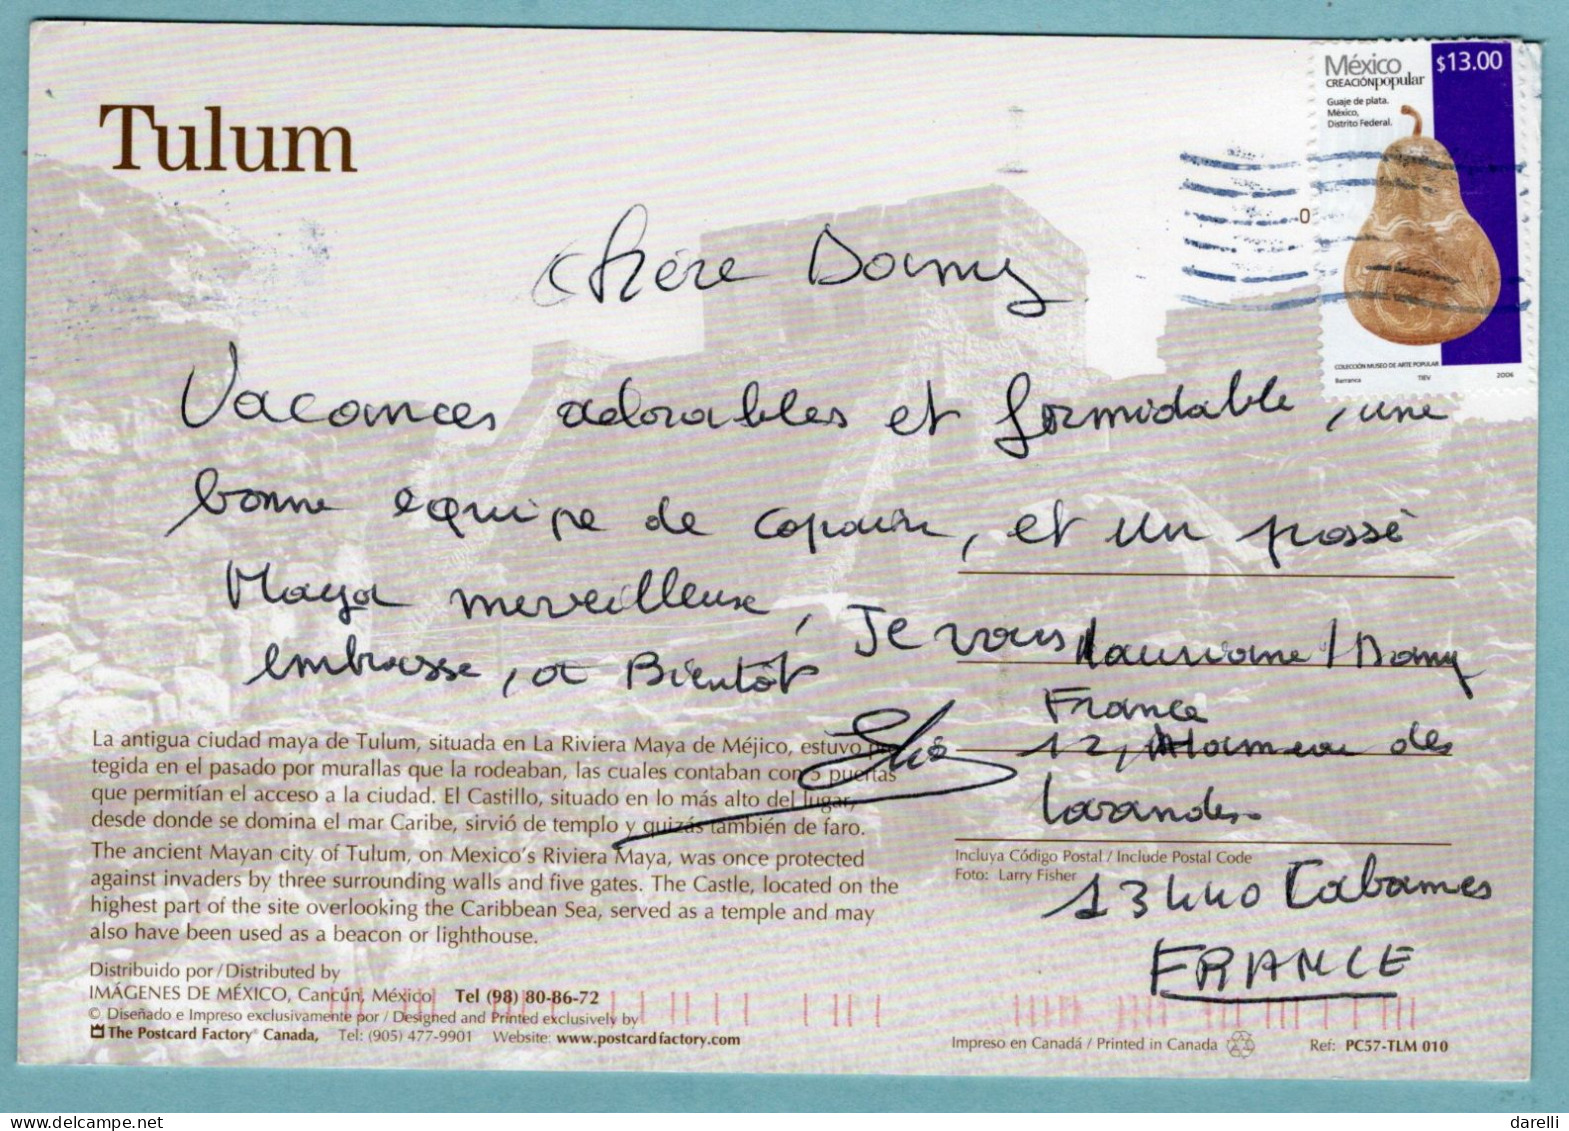 Tulum
México $13.00
CREACIÓNpopular
Guaje de plata.
México,
Distrito Federal.
COLECCIÓN MUSEO DE ARTE POPULAR
Barranca TIEV 2006
Chère Dany
Vacances adorables et formidable, une
bonne equipe de copain, et un passé
Maya merveilleuse, Je vous
embrasse, a Bientôt
La antigua ciudad maya de Tulum, situada en La Riviera Maya de Méjico, estuvo
tegida en el pasado por murallas que la rodeaban, las cuales contaban con 5 puertas
que permitían el acceso a la ciudad. El Castillo, situado en lo más alto del lugar,
desde donde se domina el mar Caribe, sirvió de templo y quizás también de faro.
The ancient Mayan city of Tulum, on Mexico's Riviera Maya, was once protected
against invaders by three surrounding walls and five gates. The Castle, located on the
highest part of the site overlooking the Caribbean Sea, served as a temple and may
also have been used as a beacon or lighthouse.
Distribuido por / Distributed by
IMÁGENES DE MÉXICO, Cancún, México Tel (98) 80-86-72
© Diseñado e Impreso exclusivamente por / Designed and Printed exclusively by
The Postcard Factory® Canada, Tel: (905) 477-9901 Website: www.postcardfactory.com
Dany
France
12, des
13440 Cabannes
FRANCE
Incluya Código Postal / Include Postal Code
Foto: Larry Fisher
Impreso en Canadá / Printed in Canada Ref: PC57-TLM 010
darelli